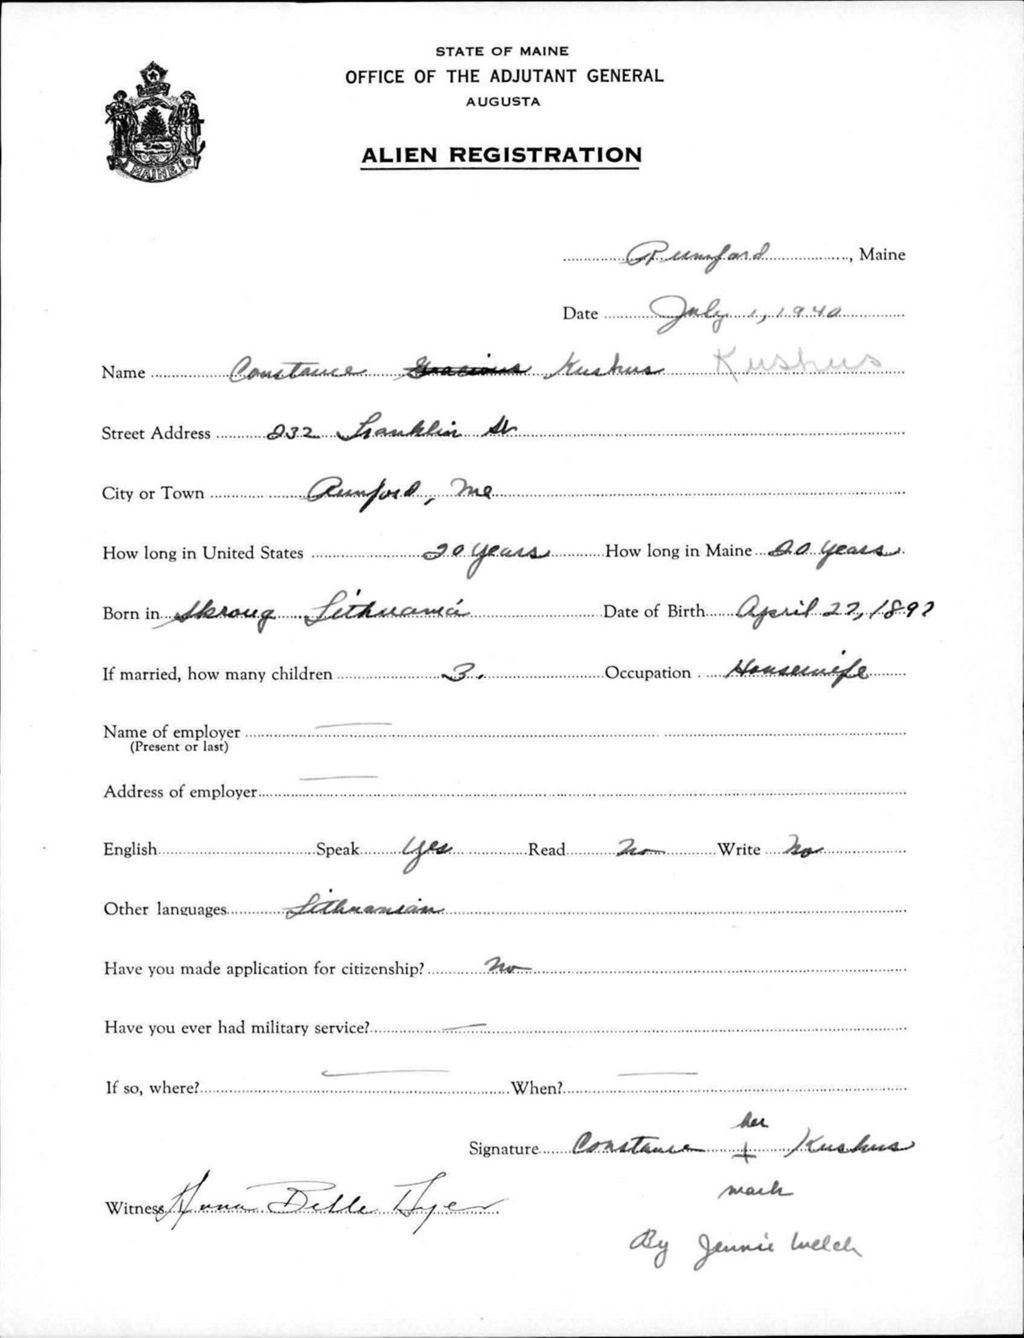 STATE OF MAINE
OFFICE OF THE ADJUTANT GENERAL
AUGUSTA
ALIEN REGISTRATION
MAINE
Rumford, Maine
Date July 1, 1940
Name Constance Gracious Kushus Kushus
Street Address 232 Franklin St
City or Town Rumford, Me
How long in United States 20 years How long in Maine 20 years
Born in Skroug Lithuania Date of Birth April 27, 1897
If married, how many children 3. Occupation Housewife
Name of employer
(Present or last)
Address of employer
English Speak Yes Read No Write No
Other languages Lithuanian
Have you made application for citizenship? No
Have you ever had military service? —
If so, where? — When? —
her
Signature Constance + Kushus
mark
Witness Anna Belle Dyer
By Jennie Welch